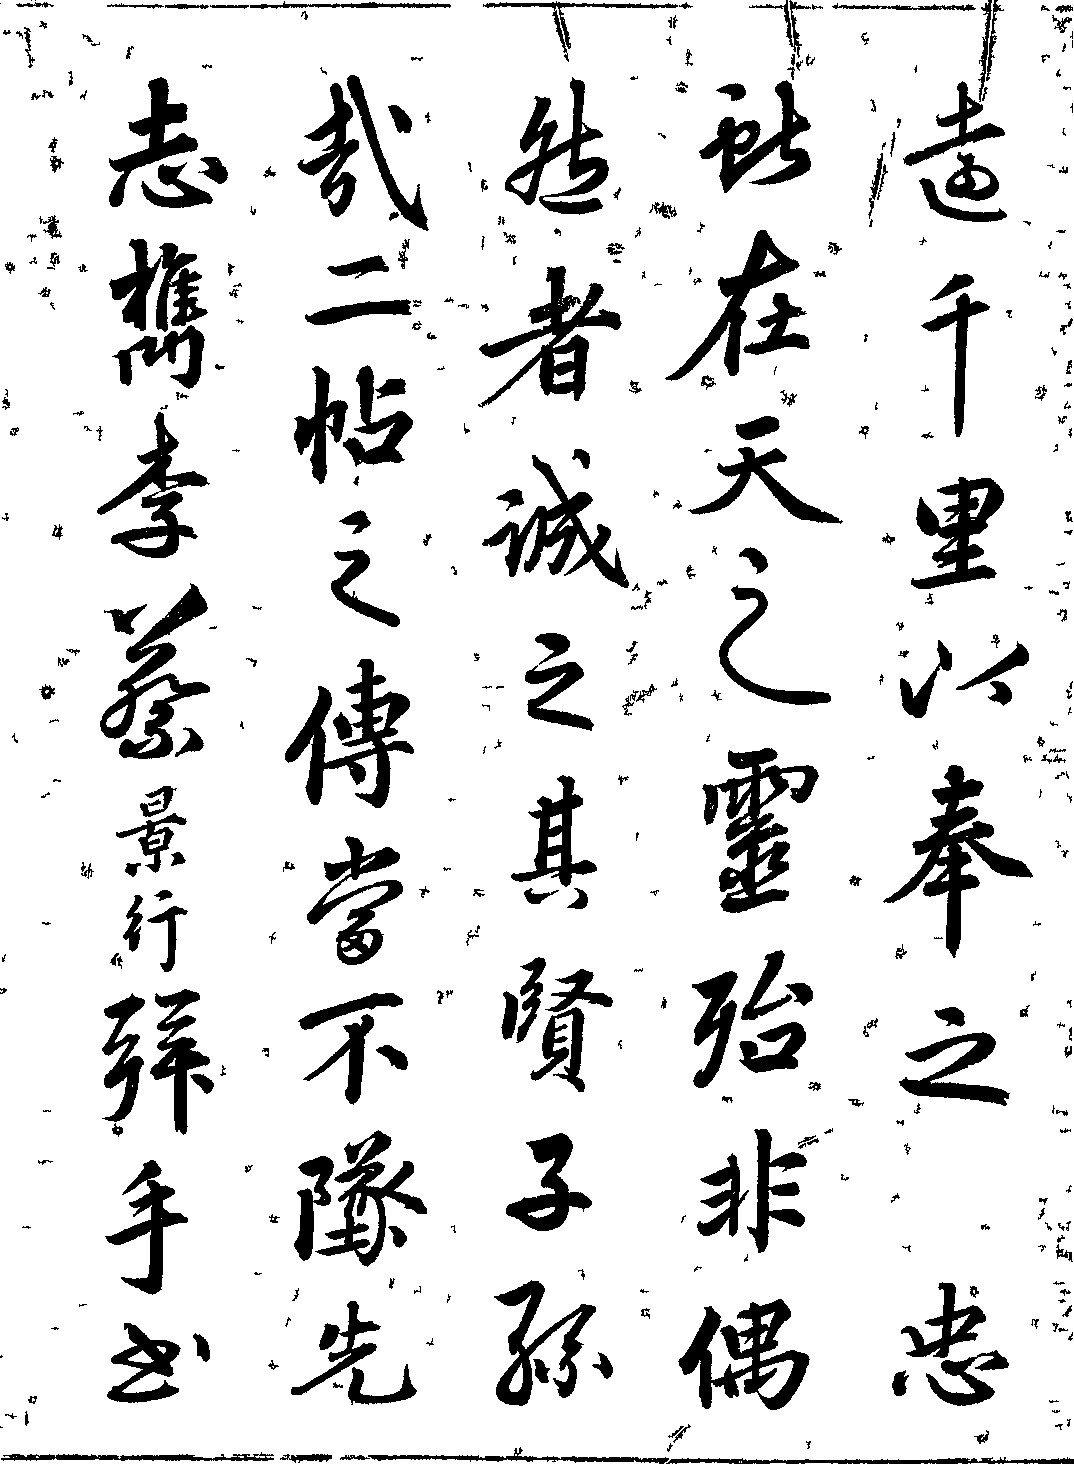 遠千里以奉之 忠
在天之靈殆非偶
然者誠之其賢子孫
哉二帖之傳當不墜先
志檇李蔡景行拜手書